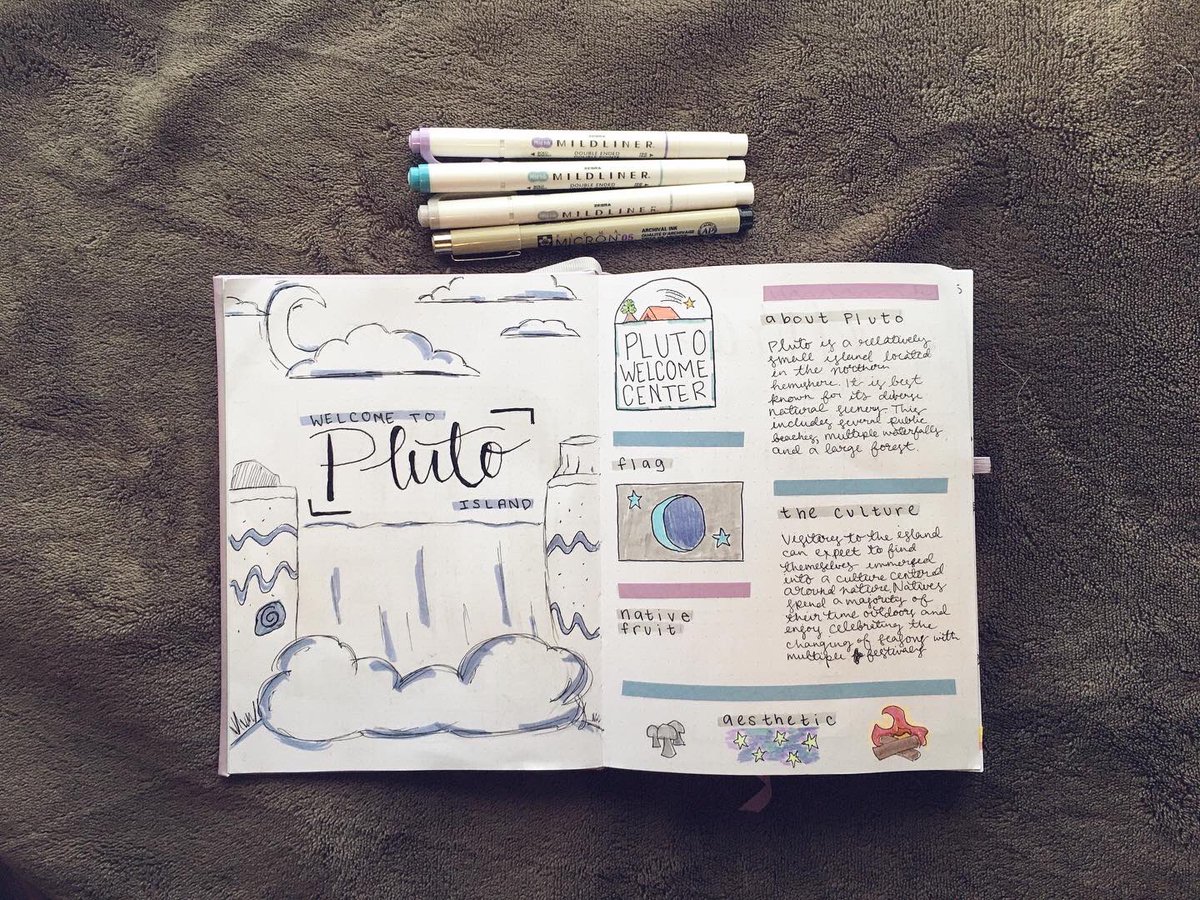 ZEBRA
Mild MILDLINER
DOUBLE ENDED
ZEBRA
Mild MILDLINER
DOUBLE ENDED
ZEBRA
MILDLINER
MICRON 05 ARCHIVAL INK
QUALITÉ D'ARCHIVAGE
AP
WELCOME TO
Pluto
ISLAND
PLUTO
WELCOME
CENTER
flag
native
fruit
5
about Pluto
Pluto is a relatively
small island located
in the northern
hemishere. It is best
known for its diverse
natural scenery. This
includes several public
beaches, multiple waterfalls
and a large forest.
the culture
Visitors to the island
can expect to find
themselves immersed
into a culture centered
around nature. Natives
spend a majority of
their time outdoors and
enjoy celebrating the
changing of seasons with
multiple festivals
aesthetic